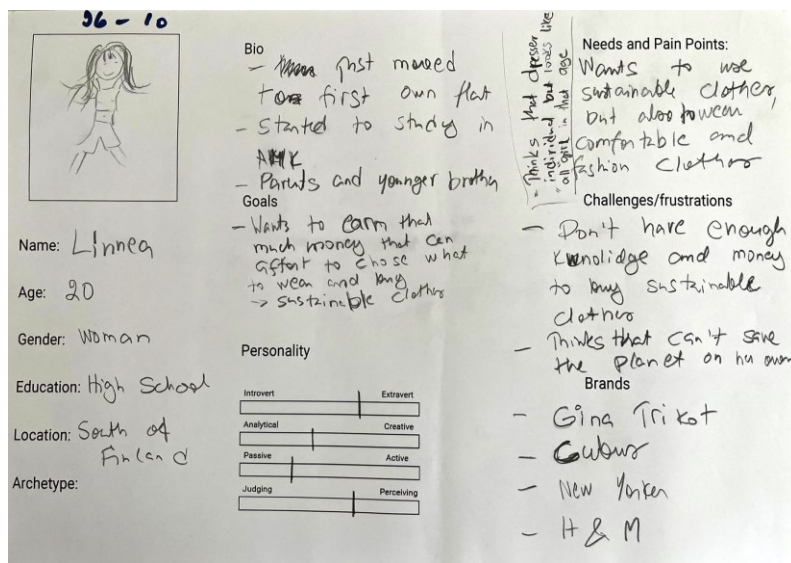 96 - 10
Name: Linnea
Age: 20
Gender: Woman
Education: High School
Location: South of
Finland
Archetype:
Bio
- just moved
to first own flat
- Started to study in
AMK
- Parents and younger brother
Goals
- Wants to earn that
much money that can
affort to chose what
to wear and buy
-> sustainable clother
Personality
Introvert Extravert
Analytical Creative
Passive Active
Judging Perceiving
- Thinks that dresser
individual but looks like
all girl in that age
Needs and Pain Points:
Wants to use
sustainable clother,
but also to wear
comfortable and
fashion clother
Challenges/frustrations
- Don't have enough
knolidge and money
to buy sustainable
clother
- Thinks that can't save
the planet on her own
Brands
- Gina Tricot
- Cubus
- New Yorker
- H & M